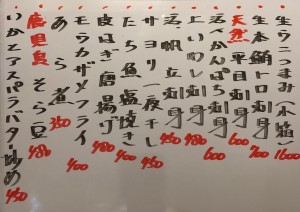 生ウニつまみ(小箱) 1600
生本鮪トロ刺身 1200
天然平目刺身 600
活〆かんぱち刺身 600
生上いわし刺身 480
活帆立刺身 450
サヨリ一夜干し 450
たち魚塩焼き 400
皮はぎ唐揚げ 480
モウカザメフライ 400
あら煮 350
鹿児島そら豆 480
いかとアスパラバター炒め 450